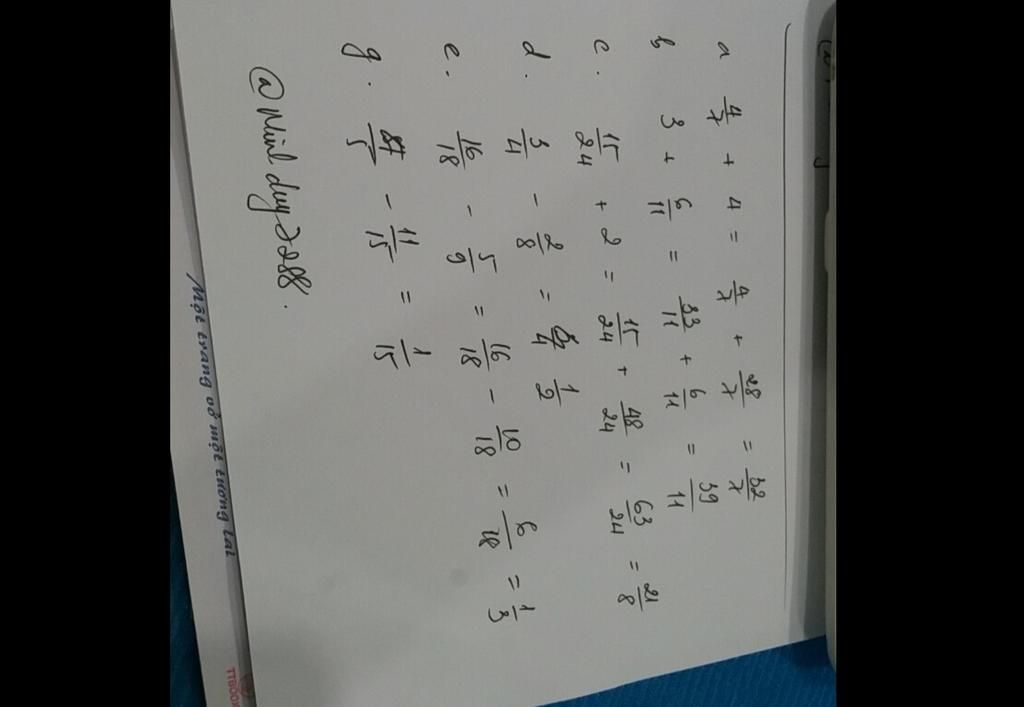 a 4/7 + 4 = 4/7 + 28/7 = 32/7
b 3 + 6/11 = 33/11 + 6/11 = 39/11
c. 15/24 + 2 = 15/24 + 48/24 = 63/24 = 21/8
d. 3/4 - 2/8 = 1/2
e. 16/18 - 5/9 = 16/18 - 10/18 = 6/18 = 1/3
g. /5 - 11/15 = 1/15
@Minh duy2288.
Một trang vở một tương lai